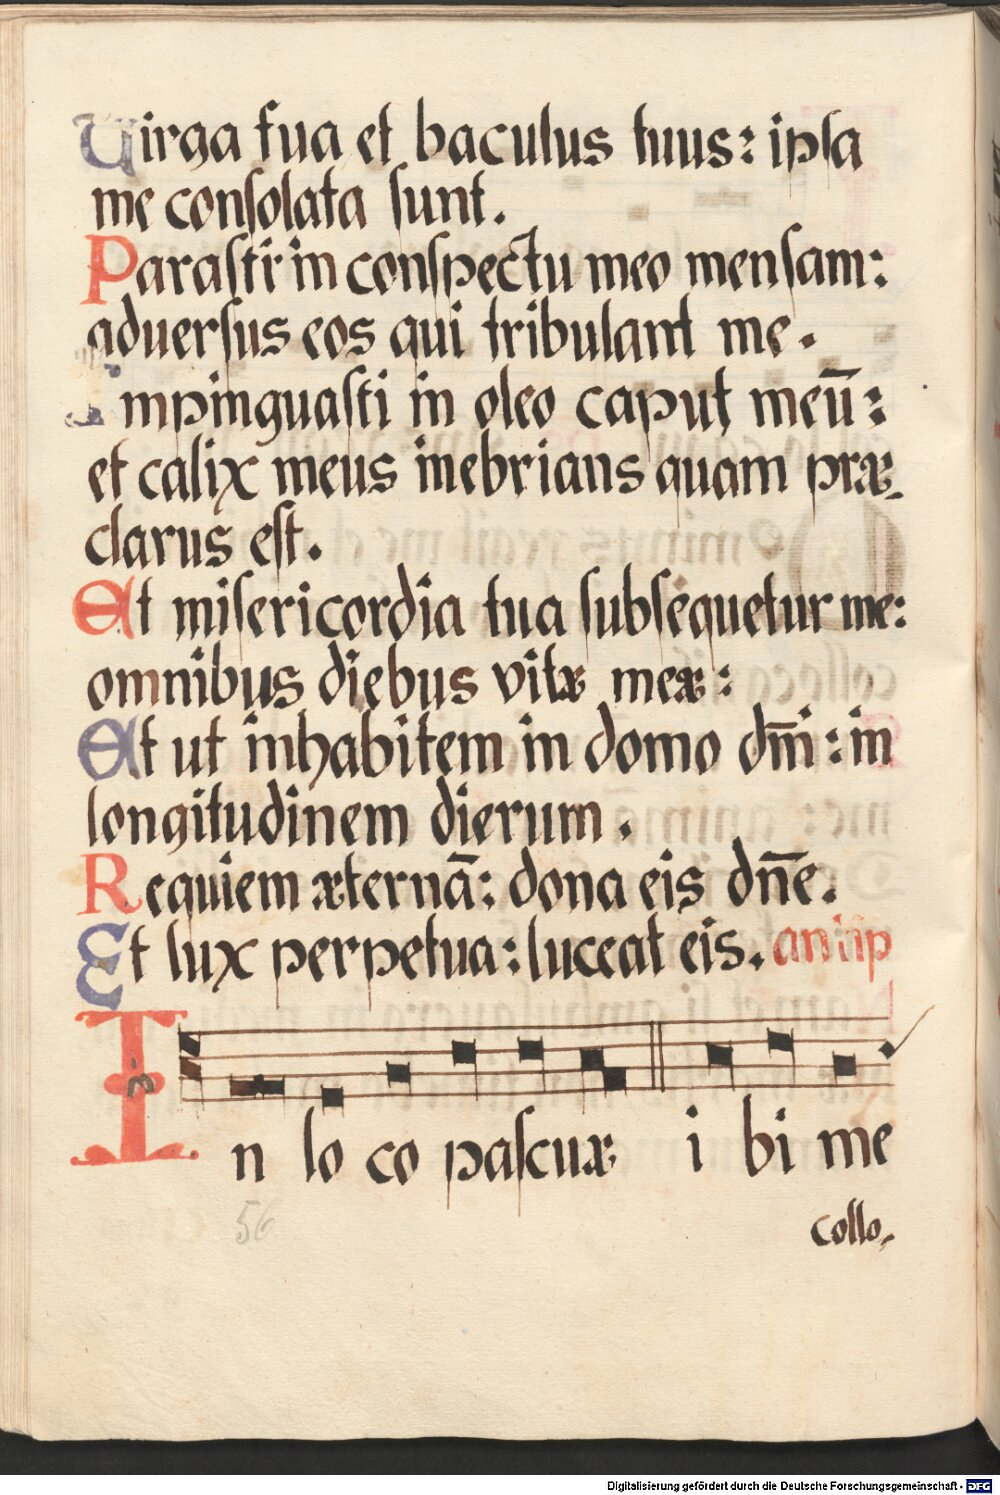 Virga tua et baculus tuus: ipsa
me consolata sunt.
Parasti in conspectu meo mensam:
aduersus eos qui tribulant me.
Impinguasti in oleo caput meū:
et calix meus inebrians quam præ-
clarus est.
Et misericordia tua subsequetur me:
omnibus diebus vitæ meæ:
Et ut inhabitem in domo dm̄i: in
longitudinem dierum.
Requiem æternā: dona eis dn̄e.
Et lux perpetua: luceat eis. antip
In lo co pascuæ i bi me
56
collo,
Digitalisierung gefördert durch die Deutsche Forschungsgemeinschaft - DFG